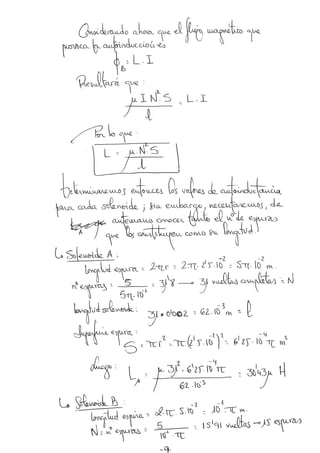 Considerando ahora que el flujo magnético que
provoca la autoinducción es
ϕ_B = L · I
Resultará que:
μ I N² S / l = L · I
Por lo que:
L = μ · N² · S / l
Determinaremos entonces los valores de autoinductancia
para cada solenoide; sin embargo, necesitaremos, de
antemano conocer tanto el nº de espiras
que los constituyen como su longitud
↳ Solenoide A:
longitud espira = 2πr = 2·π·2'5·10⁻² = 5π·10⁻² m.
nº espiras = 5 / 5π·10⁻² = 31'8 → 31 vueltas completas = N
longitud solenoide: 31 · 0'002 = 62·10⁻³ m = l
Superficie espira:
S = πr² = π(2'5·10⁻²)² = 6'25·10⁻⁴ π m²
Luego: L_A = μ · 31² · 6'25·10⁻⁴ π / 62·10⁻³ = 30'43 μ H
↳ Solenoide B:
Longitud espira = 2·π·5·10⁻² = 10⁻¹·π m.
N: nº espiras = 5 / 10⁻¹·π = 15'91 vueltas → 15 espiras